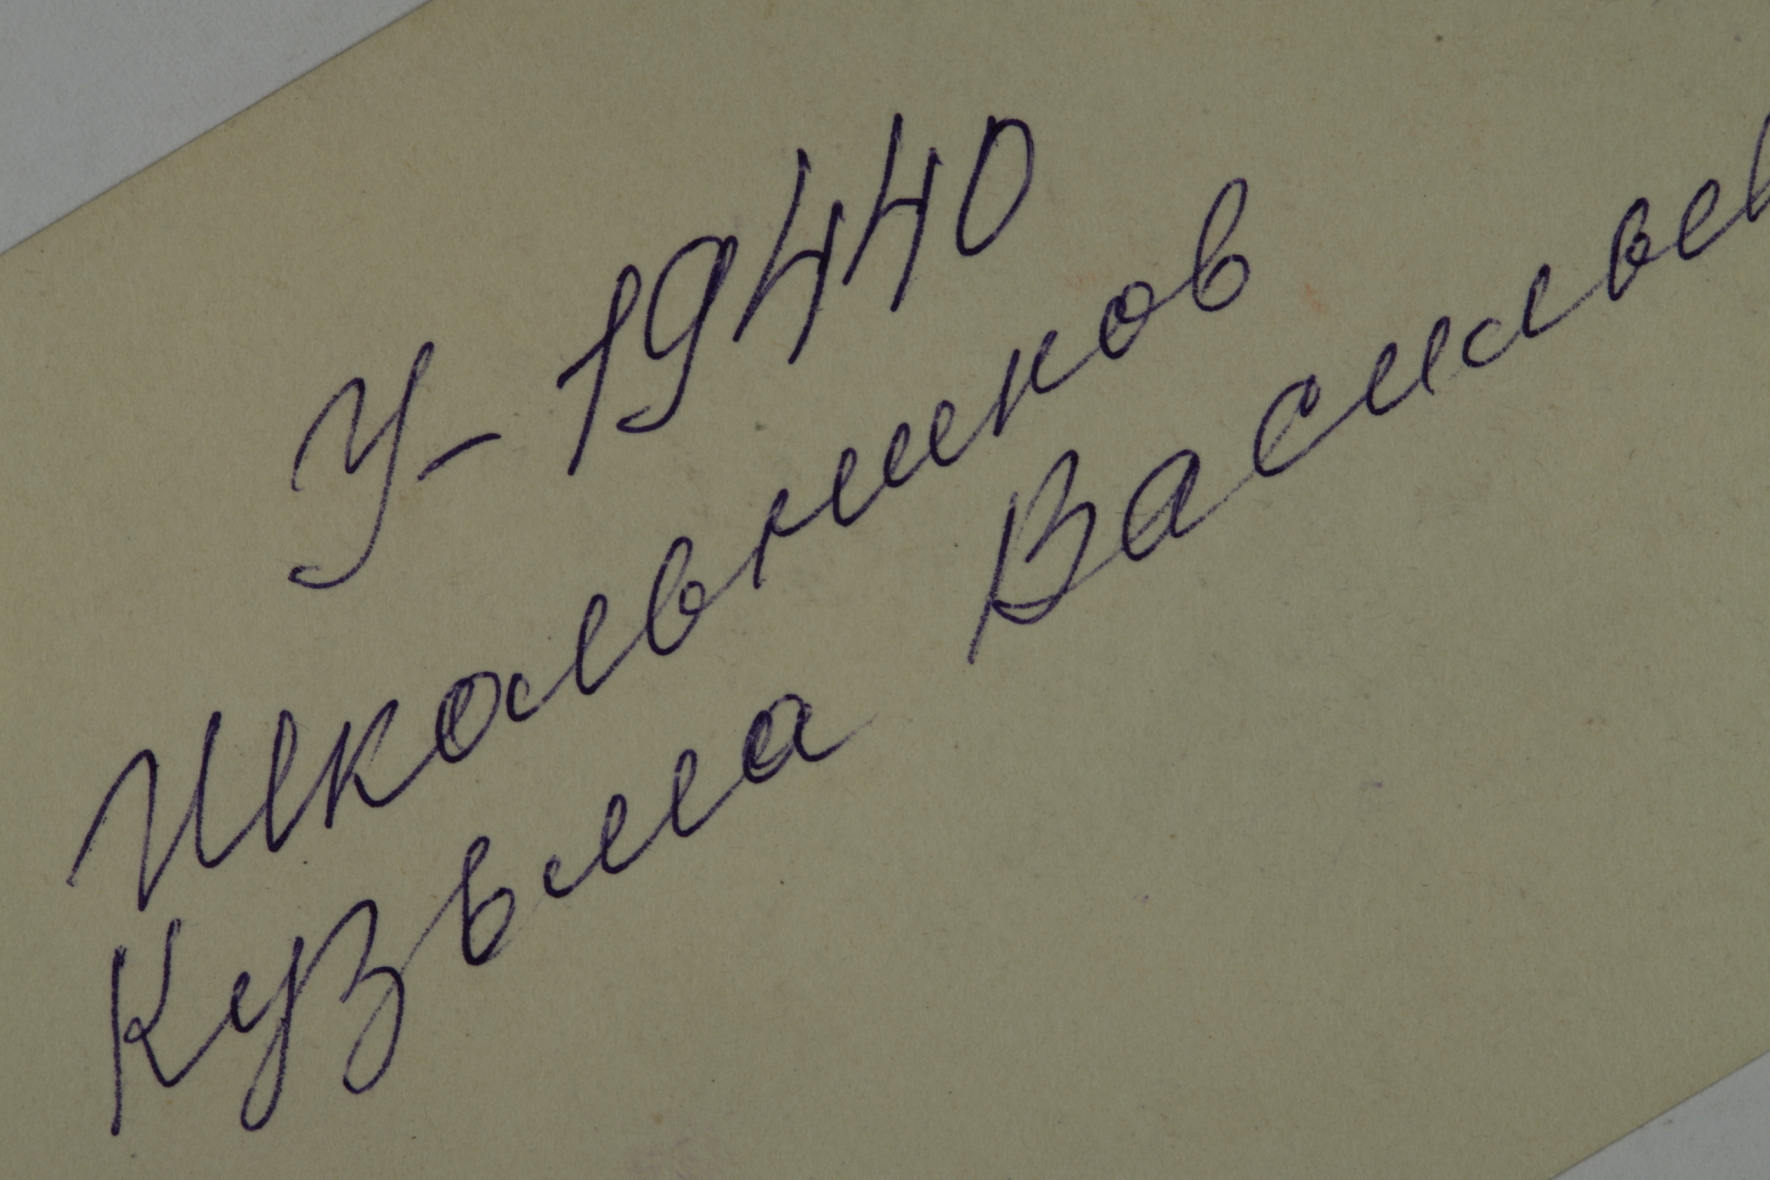 У-19440
Школьников
Кузьма Васильев